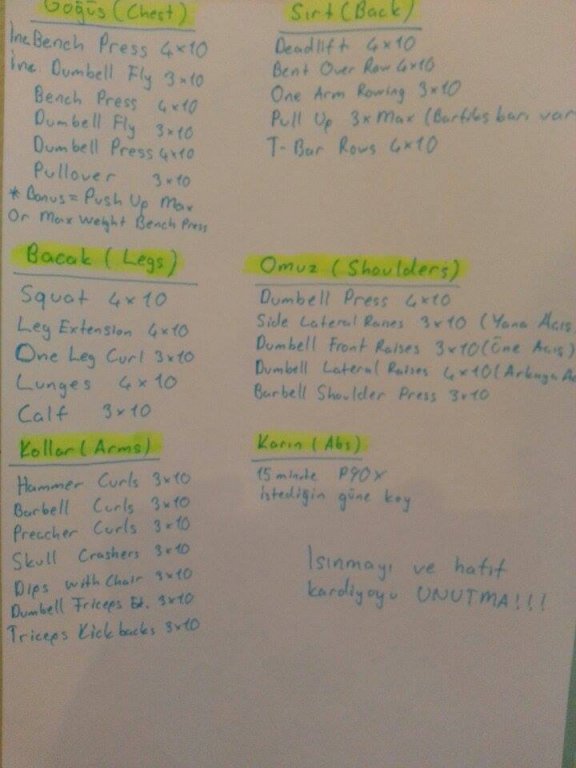 Göğüs (Chest)
Inc Bench Press 4x10
inc Dumbell Fly 3x10
Bench Press 4x10
Dumbell Fly 3x10
Dumbell Press 4x10
Pullover 3x10
* Bonus = Push Up Max
Or Max Weight Bench Press
Sırt (Back)
Deadlift 4x10
Bent Over Row 4x10
One Arm Rowing 3x10
Pull Up 3xMax (Barfiks barı var
T-Bar Rows 4x10
Bacak (Legs)
Squat 4x10
Leg Extension 4x10
One Leg Curl 3x10
Lunges 4x10
Calf 3x10
Omuz (Shoulders)
Dumbell Press 4x10
Side Lateral Raises 3x10 (Yana Açış
Dumbell Front Raises 3x10 (Öne Açış)
Dumbell Lateral Raises 4x10 (Arkaya
Barbell Shoulder Press 3x10
Kollar (Arms)
Hammer Curls 3x10
Barbell Curls 3x10
Preacher Curls 3x10
Skull Crashers 3x10
Dips With Chair 3x10
Dumbell Triceps Ex. 3x10
Triceps Kickbacks 3x10
Karın (Abs)
15 minute P90X
istediğin güne koy
Isınmayı ve hafif
kardiyoyu UNUTMA!!!